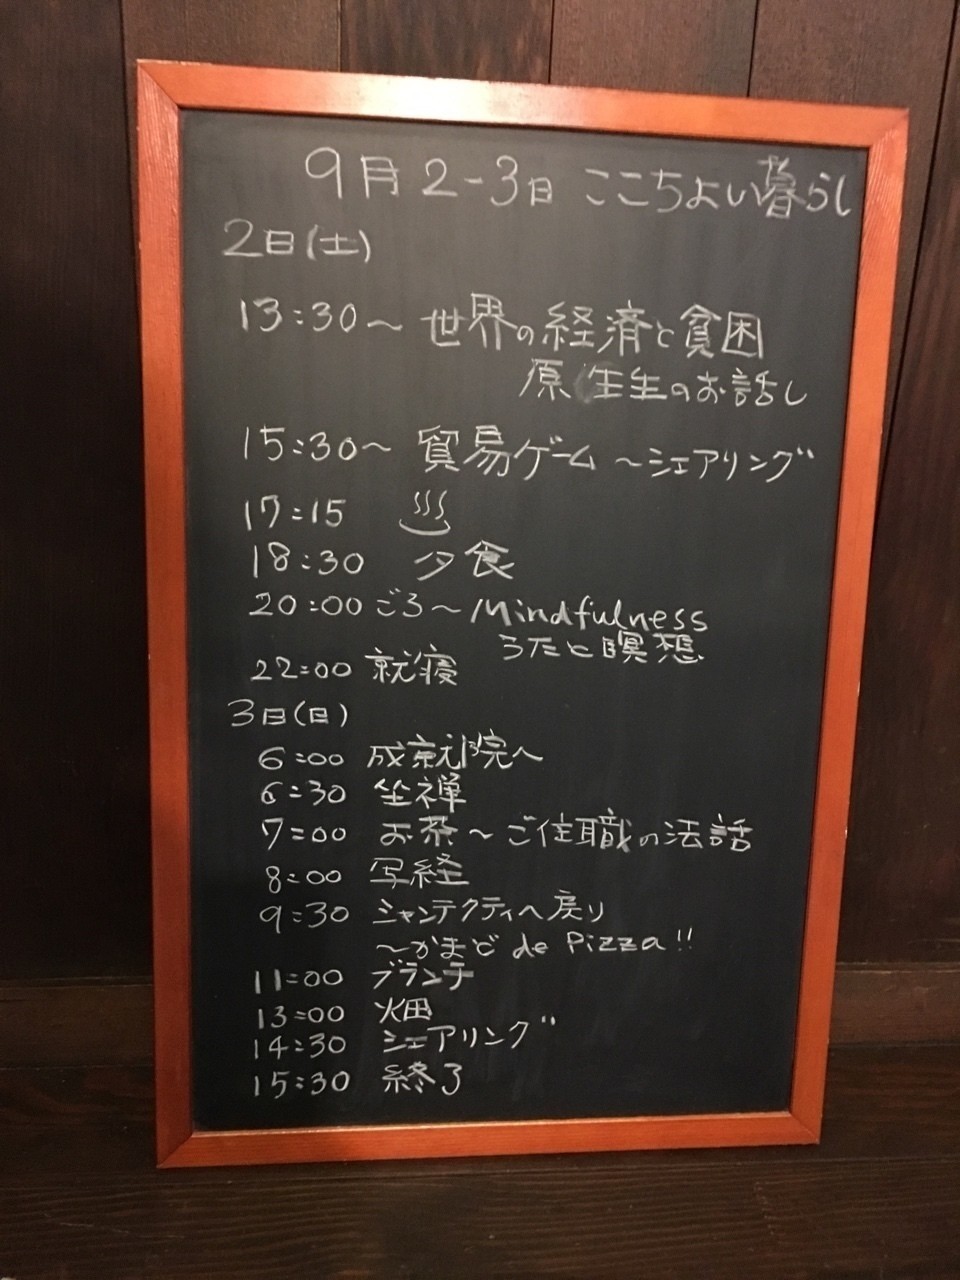 9月2-3日 ここちよい暮らし
2日(土)
13:30〜 世界の経済と貧困
原 先生のお話し
15:30〜 貿易ゲーム 〜シェアリング
17:15 ♨
18:30 夕食
20:00ごろ〜 Mindfulness
うたと瞑想
22:00 就寝
3日(日)
6:00 成就院へ
6:30 坐禅
7:00 お茶〜ご住職の法話
8:00 写経
9:30 シャンテクティへ戻り
〜かまど de Pizza!!
11:00 ブランチ
13:00 畑
14:30 シェアリング
15:30 終了